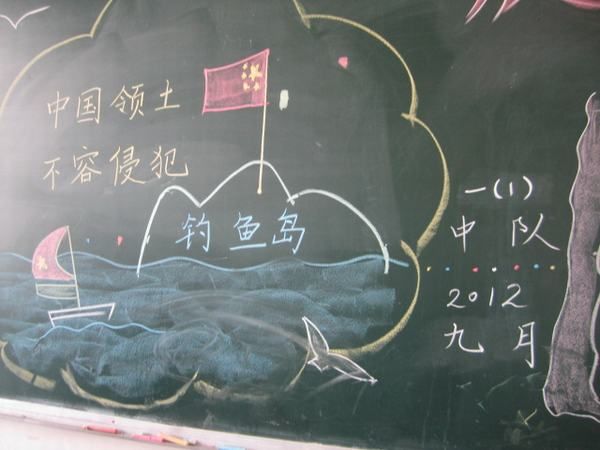 中国领土
不容侵犯
钓鱼岛
一(1)
中队
2012
九月